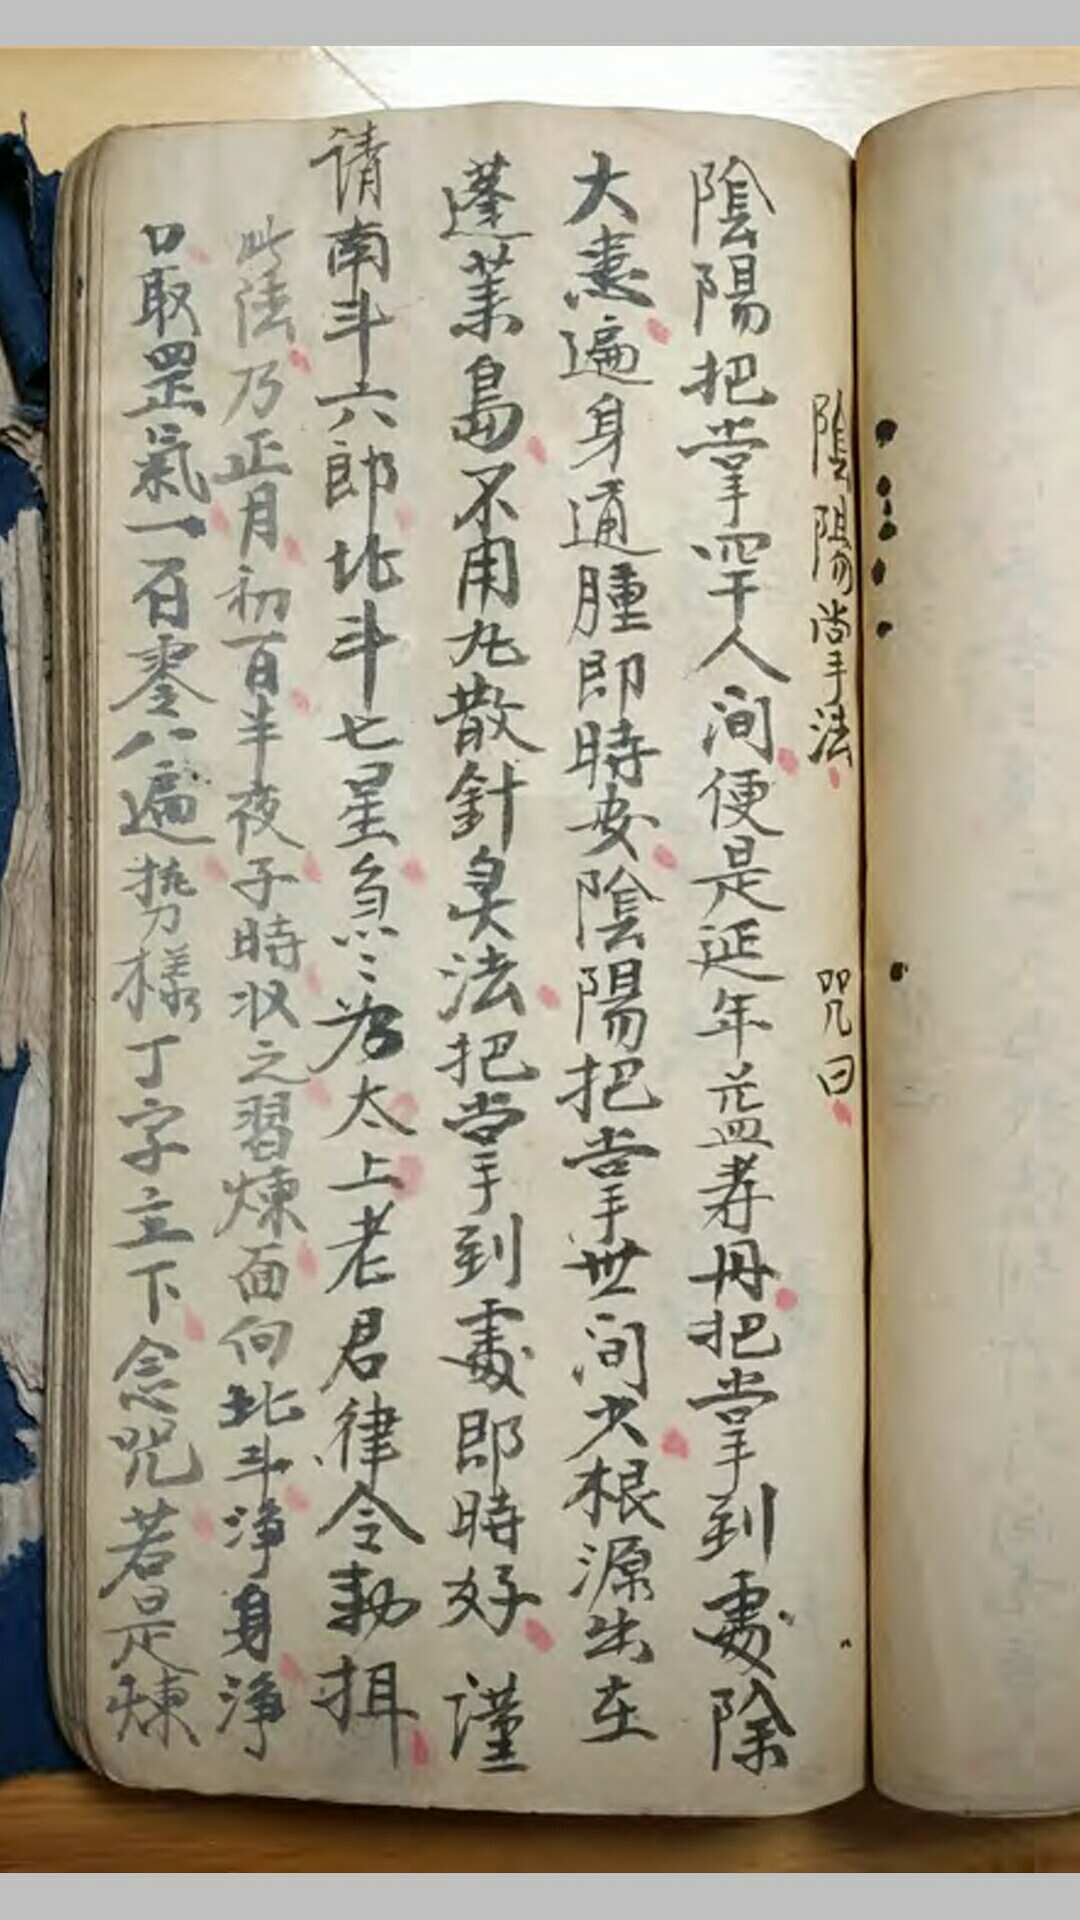 陰陽掌法 咒曰
陰陽把掌罕人间便是延年益寿丹把掌到處除
大患遍身通腫即時安陰陽把掌世间少根源出在
蓬莱島不用丸散針灸法把掌到處即時好 谨
请南斗六郎北斗七星急〻为太上老君律令勅
此法乃正月初一日半夜子時収之習煉面向北斗净身净
口取罡氣一百零八遍势樣丁字立下念咒若是煉